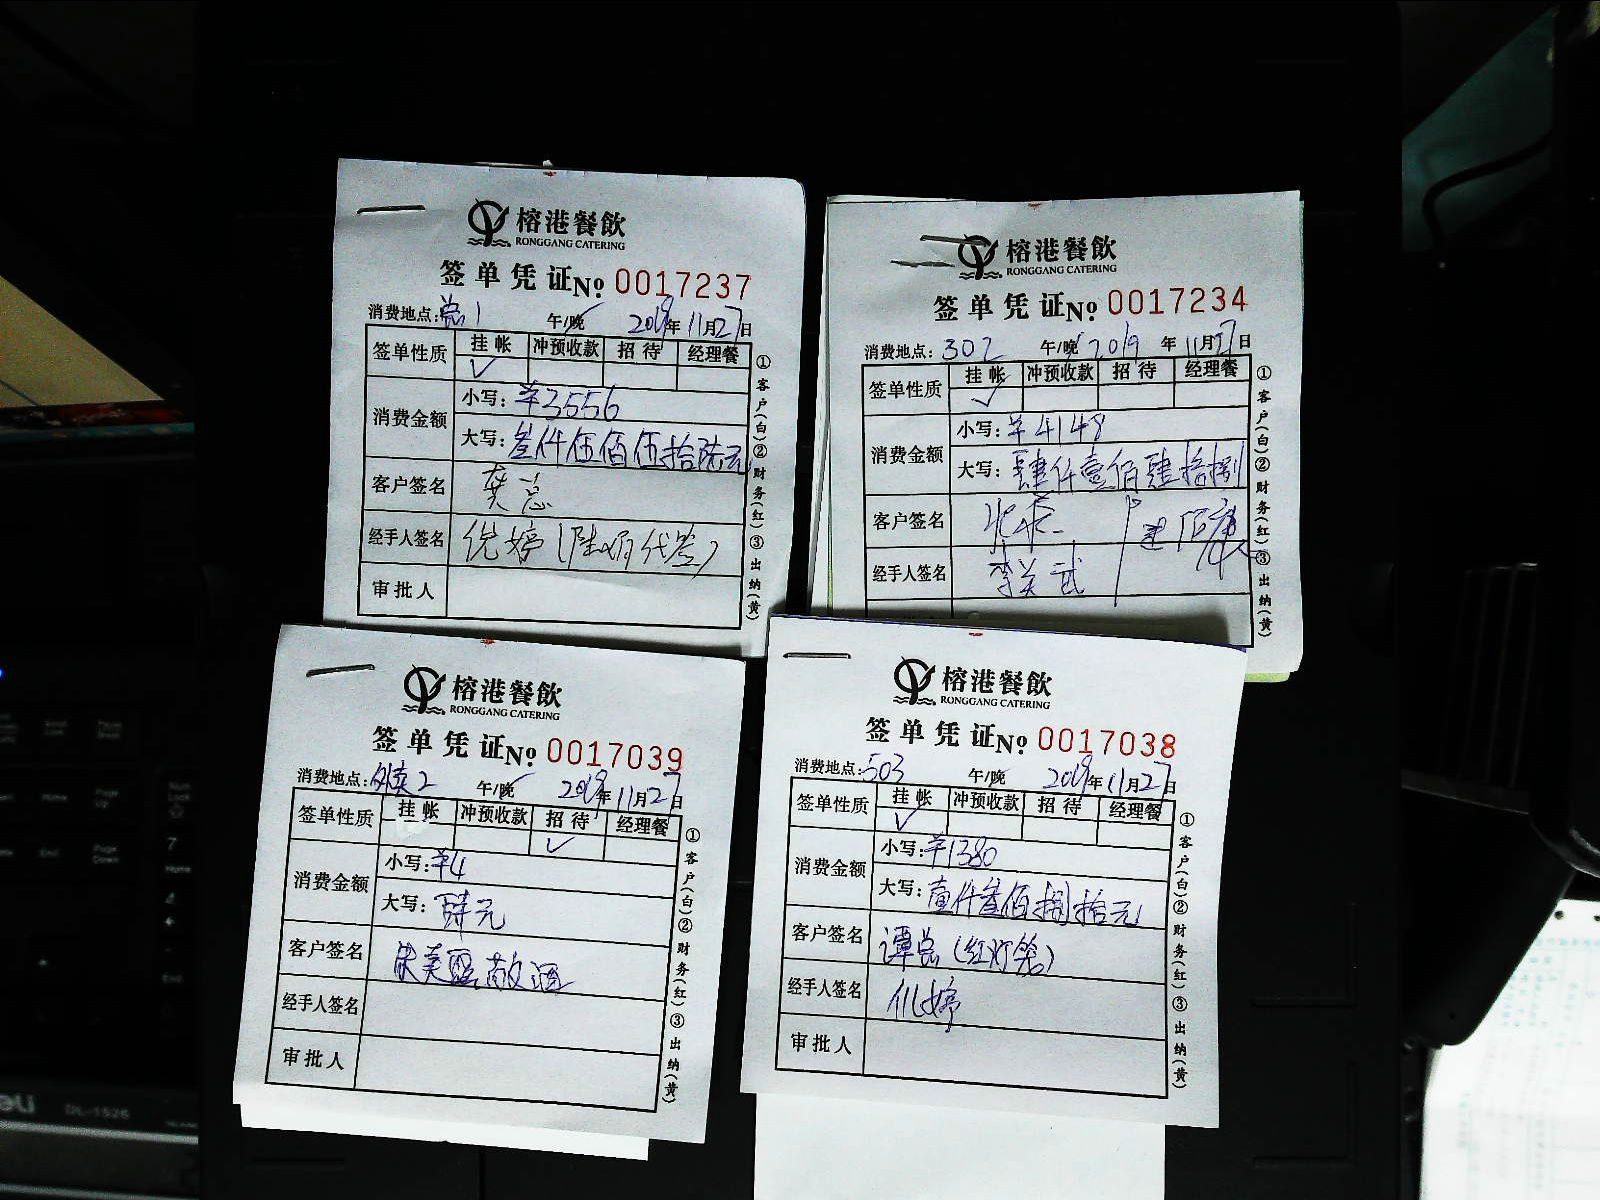 榕港餐飲
RONGGANG CATERING
签单凭证 No 0017237
消费地点: 总1 午/晚 2019年11月27日
签单性质 挂帐 冲预收款 招待 经理餐
✓
消费金额 小写: ¥3556
大写: 叁仟伍佰伍拾陆元
客户签名 龚总
经手人签名 倪婷(代签)
审批人
①客户(白)②财务(红)③出纳(黄)
榕港餐飲
RONGGANG CATERING
签单凭证 No 0017234
消费地点: 302 午/晚 2019年11月27日
签单性质 挂帐 冲预收款 招待 经理餐
✓
消费金额 小写: ¥4148
大写: 肆仟壹佰肆拾捌
客户签名
经手人签名
①客户(白)②财务(红)③出纳(黄)
榕港餐飲
RONGGANG CATERING
签单凭证 No 0017039
消费地点: 外卖2 午/晚 2019年11月27日
签单性质 挂帐 冲预收款 招待 经理餐
✓
消费金额 小写: ¥4
大写: 肆元
客户签名 朱美丽敬酒
经手人签名
审批人
①客户(白)②财务(红)③出纳(黄)
榕港餐飲
RONGGANG CATERING
签单凭证 No 0017038
消费地点: 503 午/晚 2019年11月27日
签单性质 挂帐 冲预收款 招待 经理餐
✓
消费金额 小写: ¥1380
大写: 壹仟叁佰捌拾元
客户签名 谭总(红灯笼)
经手人签名 倪婷
审批人
①客户(白)②财务(红)③出纳(黄)
DL-1526